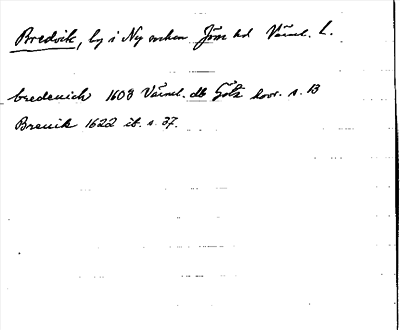 Bredvik, by i Ny socken Jöss hd Värml. L.
bredeuich 1608 Värml. db Götz kvar. s. 13
Breuik 1622 ib. s. 37.